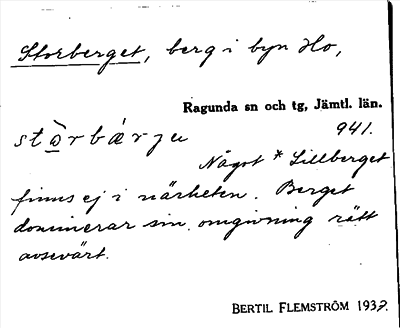 Storberget, berg i byn Ho,
Ragunda sn och tg, Jämtl. län.
stò̱rbárju 941.
Något * Lillberget
finns ej i närheten. Berget
dominerar sin omgivning rätt
avsevärt.
BERTIL FLEMSTRÖM 1937.